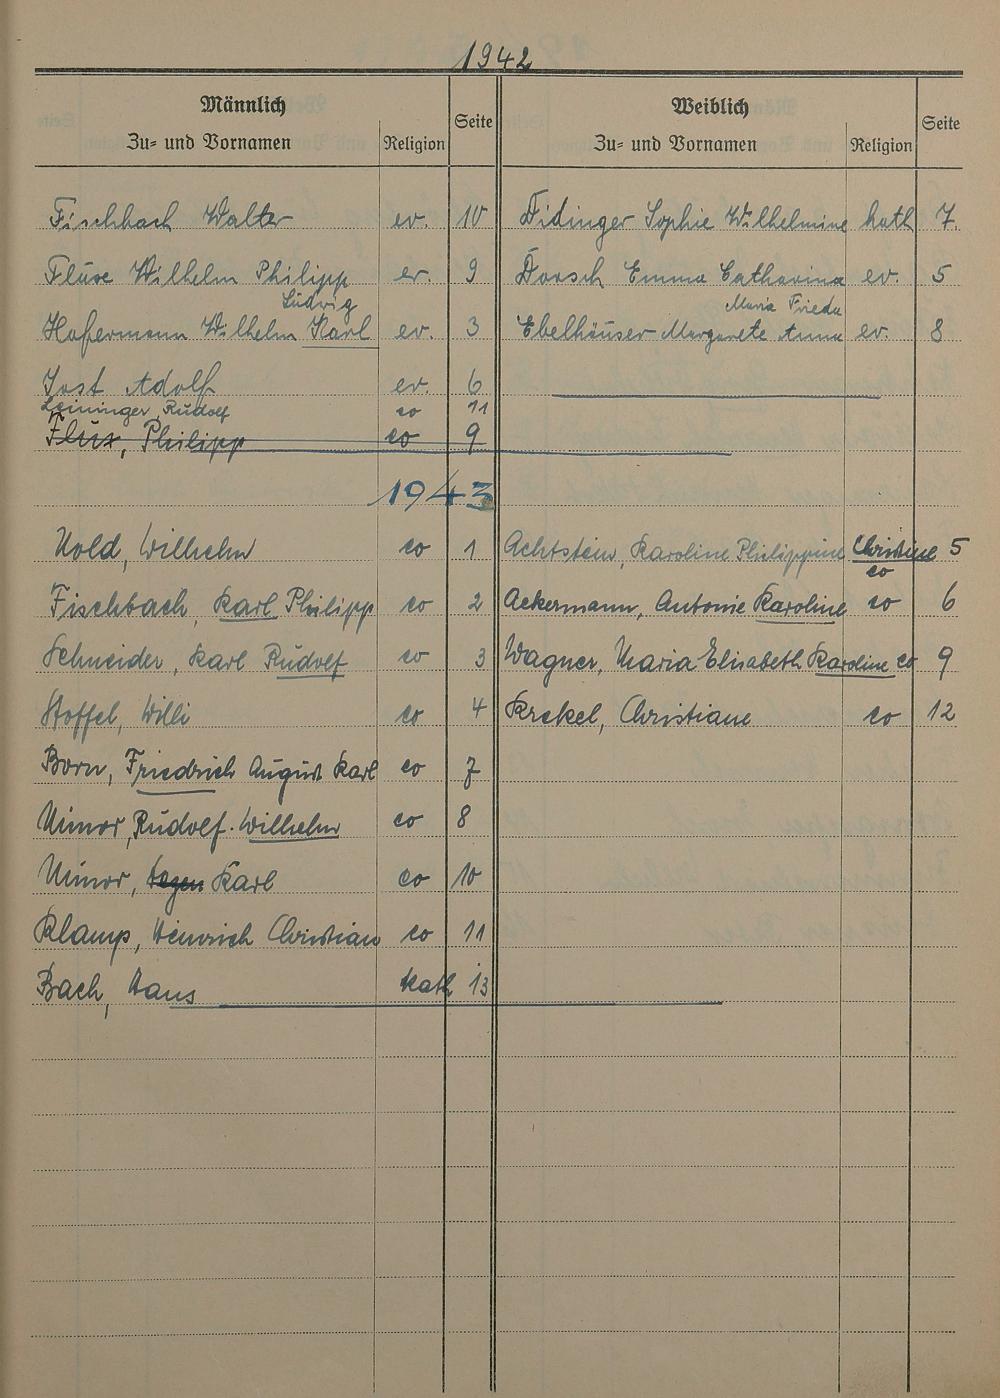 1942
Männlich
Zu= und Vornamen Religion Seite
Weiblich
Zu= und Vornamen Religion Seite
Fischbach Walter ev. 10
Didinger Sophie Wilhelmine kath 7.
Fluse Wilhelm Philipp ev. 9
Dorsch Emma Catharina ev. 5
Ludwig
Maria Frieda
Hafermann Wilhelm Karl ev. 3
Ebelhäuser Margarete Anna ev. 8
Jost Adolf ev. 6
Leininger, Rudolf ev 11
Philipp ev 9
1943
Wilhelm ev 1
Achtstein, Karoline Philippine Christine 5
ev
Fischbach, Karl Philipp ev 2
Ackermann, Antonie Karoline ev 6
Schneider, Karl Rudolf ev 3
Wagner, Maria Elisabeth Karoline ev 9
Stoffel, Willi ev 4
Krekel, Christiane ev 12
Born, Friedrich August Karl ev 7
Minor, Rudolf Wilhelm ev 8
Minor, Karl ev 10
Klamp, Heinrich Christian ev 11
Bach, Hans kath 13